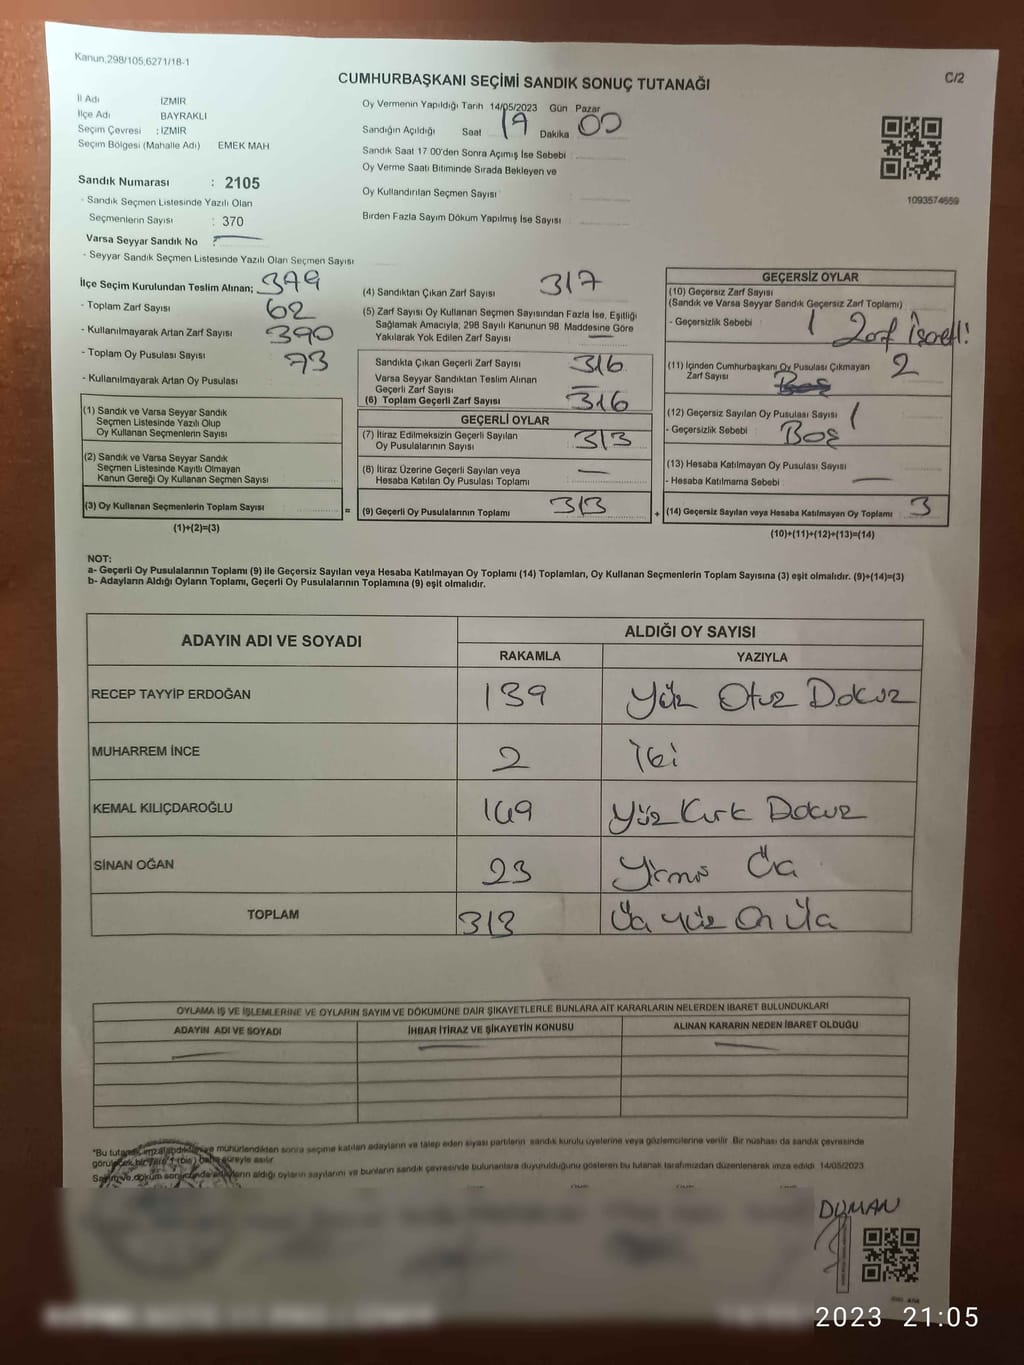 Kanun,298/105,6271/18-1
C/2
CUMHURBAŞKANI SEÇİMİ SANDIK SONUÇ TUTANAĞI
İl Adı İZMİR
İlçe Adı BAYRAKLI
Seçim Çevresi : İZMİR
Seçim Bölgesi (Mahalle Adı) EMEK MAH
Sandık Numarası : 2105
- Sandık Seçmen Listesinde Yazılı Olan
Seçmenlerin Sayısı : 370
Varsa Seyyar Sandık No :
- Seyyar Sandık Seçmen Listesinde Yazılı Olan Seçmen Sayısı
Oy Vermenin Yapıldığı Tarih 14/05/2023 Gün Pazar
Sandığın Açıldığı Saat 19 Dakika 00
Sandık Saat 17 00'den Sonra Açımış İse Sebebi
Oy Verme Saati Bitiminde Sırada Bekleyen ve
Oy Kullandırılan Seçmen Sayısı
Birden Fazla Sayım Döküm Yapılmış İse Sayısı
1093574659
İlçe Seçim Kurulundan Teslim Alınan;
- Toplam Zarf Sayısı 379
- Kullanılmayarak Artan Zarf Sayısı 62
- Toplam Oy Pusulası Sayısı 390
- Kullanılmayarak Artan Oy Pusulası 73
(1) Sandık ve Varsa Seyyar Sandık
Seçmen Listesinde Yazılı Olup
Oy Kullanan Seçmenlerin Sayısı
(2) Sandık ve Varsa Seyyar Sandık
Seçmen Listesinde Kayıtlı Olmayan
Kanun Gereği Oy Kullanan Seçmen Sayısı
(3) Oy Kullanan Seçmenlerin Toplam Sayısı =
(1)+(2)=(3)
(4) Sandıktan Çıkan Zarf Sayısı 317
(5) Zarf Sayısı Oy Kullanan Seçmen Sayısından Fazla İse, Eşitliği
Sağlamak Amacıyla, 298 Sayılı Kanunun 98 Maddesine Göre
Yakılarak Yok Edilen Zarf Sayısı —
Sandıkta Çıkan Geçerli Zarf Sayısı 316
Varsa Seyyar Sandıktan Teslim Alınan
Geçerli Zarf Sayısı —
(6) Toplam Geçerli Zarf Sayısı 316
GEÇERLİ OYLAR
(7) İtiraz Edilmeksizin Geçerli Sayılan
Oy Pusulalarının Sayısı 313
(8) İtiraz Üzerine Geçerli Sayılan veya
Hesaba Katılan Oy Pusulası Toplamı —
(9) Geçerli Oy Pusulalarının Toplamı 313 +
GEÇERSİZ OYLAR
(10) Geçersiz Zarf Sayısı
(Sandık ve Varsa Seyyar Sandık Geçersiz Zarf Toplamı)
- Geçersizlik Sebebi 1 Zarf İşaretli
(11) İçinden Cumhurbaşkanı Oy Pusulası Çıkmayan
Zarf Sayısı 2
(12) Geçersiz Sayılan Oy Pusulası Sayısı 1
- Geçersizlik Sebebi Boş
(13) Hesaba Katılmayan Oy Pusulası Sayısı
- Hesaba Katılmama Sebebi —
(14) Geçersiz Sayılan veya Hesaba Katılmayan Oy Toplamı 3
(10)+(11)+(12)+(13)=(14)
NOT:
a- Geçerli Oy Pusulalarının Toplamı (9) ile Geçersiz Sayılan veya Hesaba Katılmayan Oy Toplamı (14) Toplamları, Oy Kullanan Seçmenlerin Toplam Sayısına (3) eşit olmalıdır. (9)+(14)=(3)
b- Adayların Aldığı Oyların Toplamı, Geçerli Oy Pusulalarının Toplamına (9) eşit olmalıdır.
ADAYIN ADI VE SOYADI ALDIĞI OY SAYISI
RAKAMLA YAZIYLA
RECEP TAYYİP ERDOĞAN 139 Yüz Otuz Dokuz
MUHARREM İNCE 2 İki
KEMAL KILIÇDAROĞLU 149 Yüz Kırk Dokuz
SİNAN OĞAN 23 Yirmi Üç
TOPLAM 313 Üç yüz On Üç
OYLAMA İŞ VE İŞLEMLERİNE VE OYLARIN SAYIM VE DÖKÜMÜNE DAİR ŞİKAYETLERLE BUNLARA AİT KARARLARIN NELERDEN İBARET BULUNDUKLARI
ADAYIN ADI VE SOYADI İHBAR İTİRAZ VE ŞİKAYETİN KONUSU ALINAN KARARIN NEDEN İBARET OLDUĞU
*Bu tutanak imzalandıktan ve mühürlendikten sonra seçime katılan adayların ve talep eden siyasi partilerin sandık kurulu üyelerine veya gözlemcilerine verilir. Bir nüshası da sandık çevresinde
görülecek bir yere 1 (bir) hafta süreyle asılır.
Sayım ve döküm sonucunda adayların aldığı oyların sayılarını ve bunların sandık çevresinde bulunanlara duyurulduğunu gösteren bu tutanak tarafımızdan düzenlenerek imza edildi. 14/05/2023
DUMAN
2023 21:05